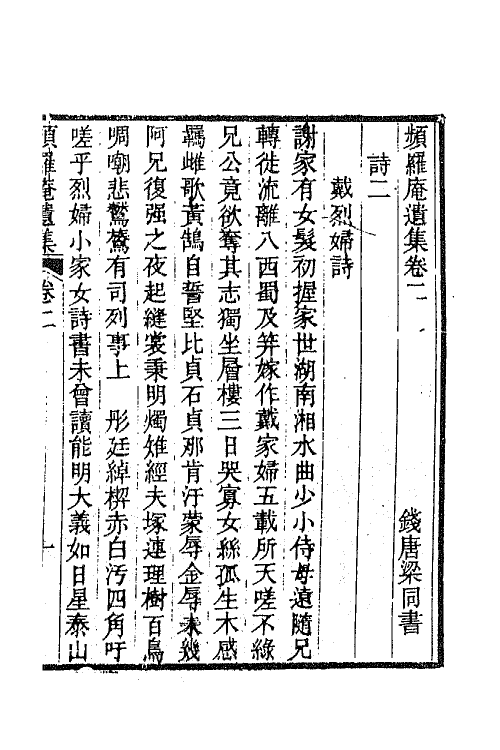 頻羅庵遺集卷二
錢唐梁同書
詩二
戴烈婦詩
謝家有女髮初握家世湖南湘水曲少小侍母遠隨兄
轉徙流離入西蜀及笄嫁作戴家婦五載所天嗟不綠
兄公竟欲奪其志獨坐層樓三日哭寡女絲孤生木感
羈雌歌黃鵠自誓堅比貞石貞那肯汙蒙辱金辱未幾
阿兄復强之夜起縫裳秉明燭雉經夫塚連理樹百鳥
啁嘲悲鷟鷟有司列事上　彤廷綽楔赤白汚四角吁
嗟乎烈婦小家女詩書未曾讀能明大義如日星泰山
頻羅庵遺集　卷二　一